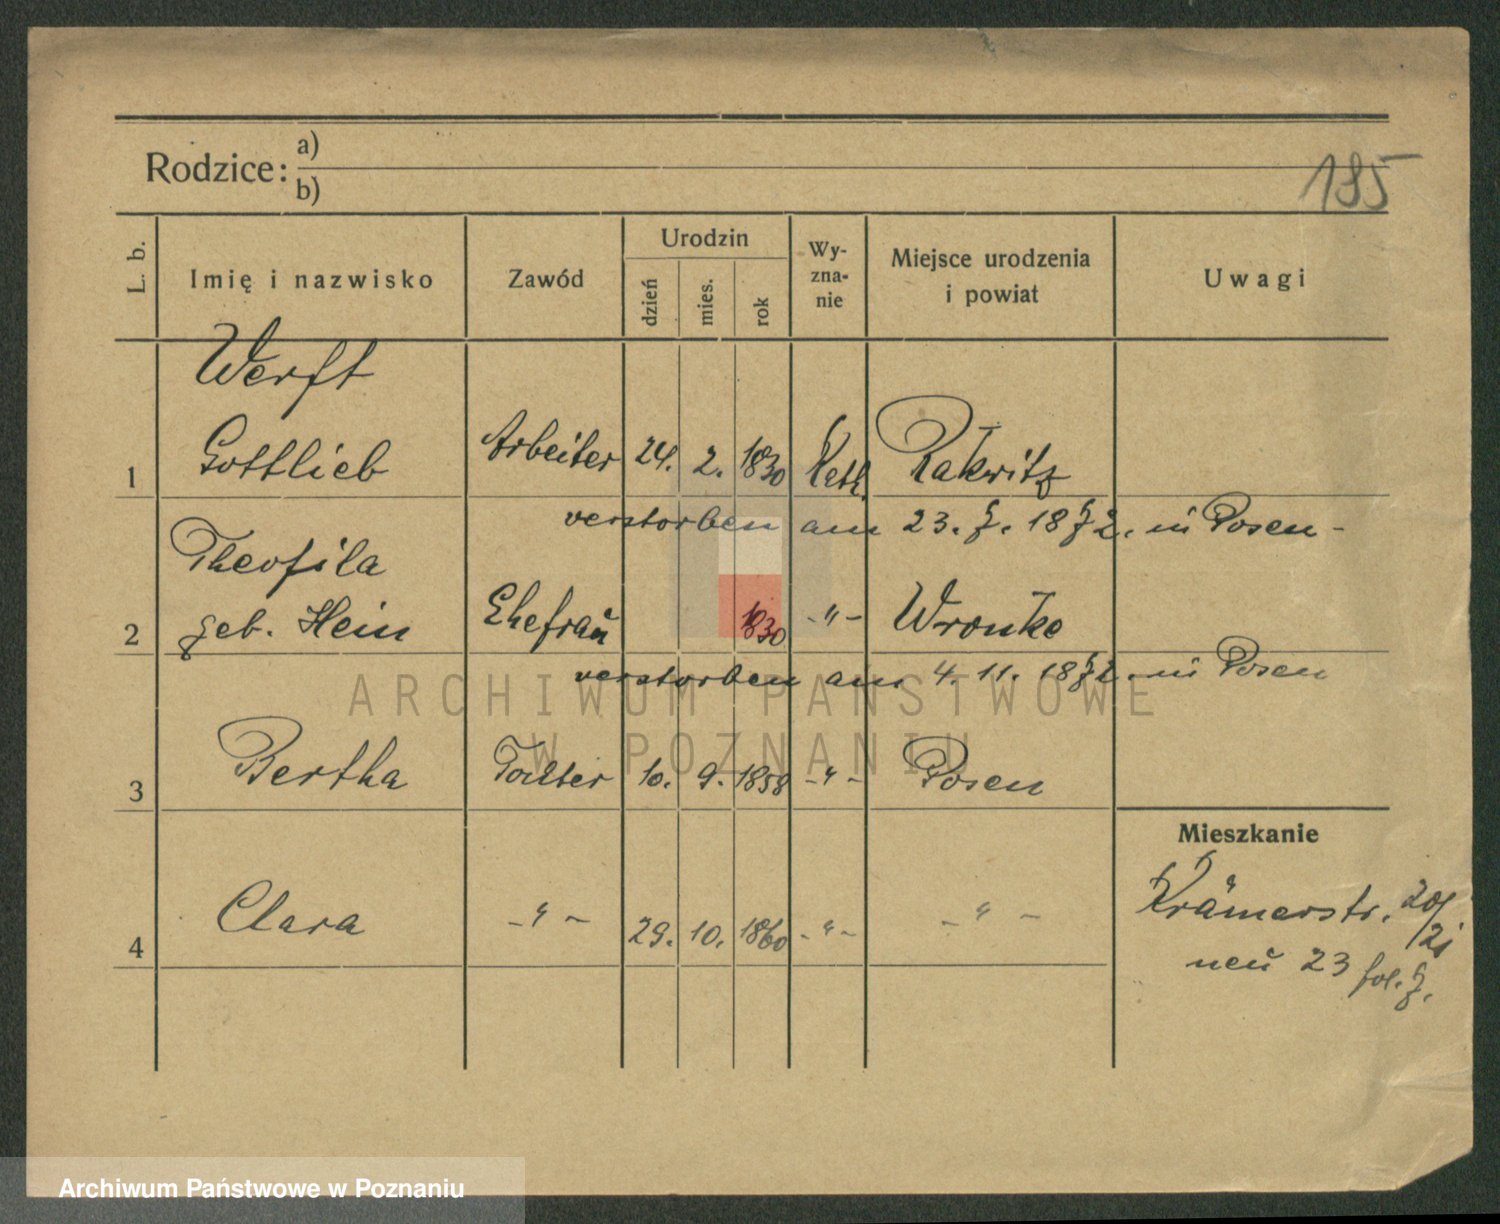 185
Rodzice: a)
b)
L. b. Imię i nazwisko Zawód Urodzin dzień mies. rok Wy-zna-nie Miejsce urodzenia i powiat Uwagi
Werft
1 Gottlieb Arbeiter 24. 2. 1830 Kath. Rakwitz
verstorben am 23. 7. 1872. in Posen -
Theofila
2 geb. Hein Ehefrau 1830 -"- Wronke
verstorben am 4. 11. 1872. in Posen
ARCHIWUM PAŃSTWOWE
W POZNANIU
3 Bertha Tochter 10. 9. 1858 -"- Posen
Mieszkanie
4 Clara -"- 29. 10. 1860 -"- -"-
Krämerstr. 20/21
neu 23 fol. 7.
Archiwum Państwowe w Poznaniu